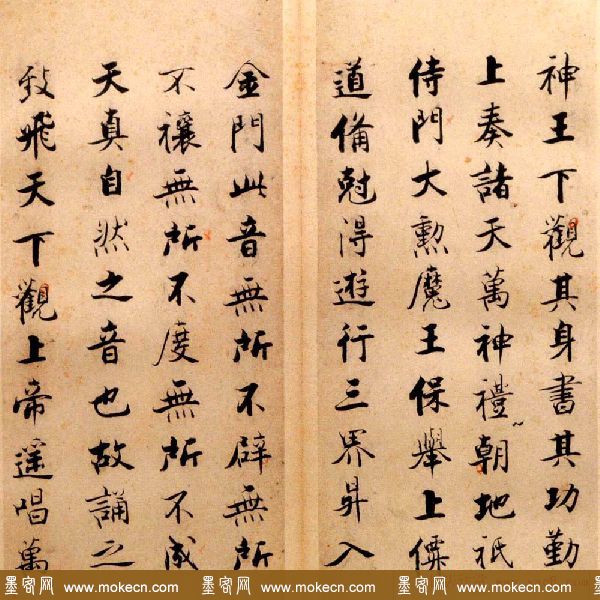 神王下觀其身書其功勤
上奏諸天萬神禮朝地祇
侍門大勳魔王保舉上僊
道備尅得遊行三界昇入
金門此音無所不辟無所
不禳無所不度無所不成
天真自然之音也故誦之
致飛天下觀上帝遥唱萬
墨客网 www.mokecn.com 墨客网 www.mokecn.com 墨客网 www.mokecn.com